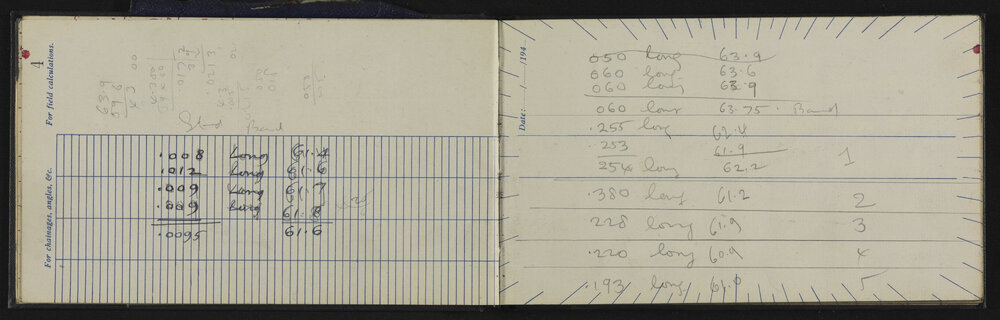 4
For field calculations.
For chainages, angles, &c.
63.9
59.6
4.3
00
Stnd Band
.008 Long 61.4
.012 Long 61.6
.009 Long 61.7
.009 Long 61.8
.0095 61.6
Date: / /194
050 long 63.9
060 long 63.6
060 long 63.9
060 long 63.75 Band
.255 long 62.4
.253 61.9
254 long 62.2 1
.380 long 61.2 2
.228 long 61.9 3
.220 long 60.9 4
.193 long 61.0 5